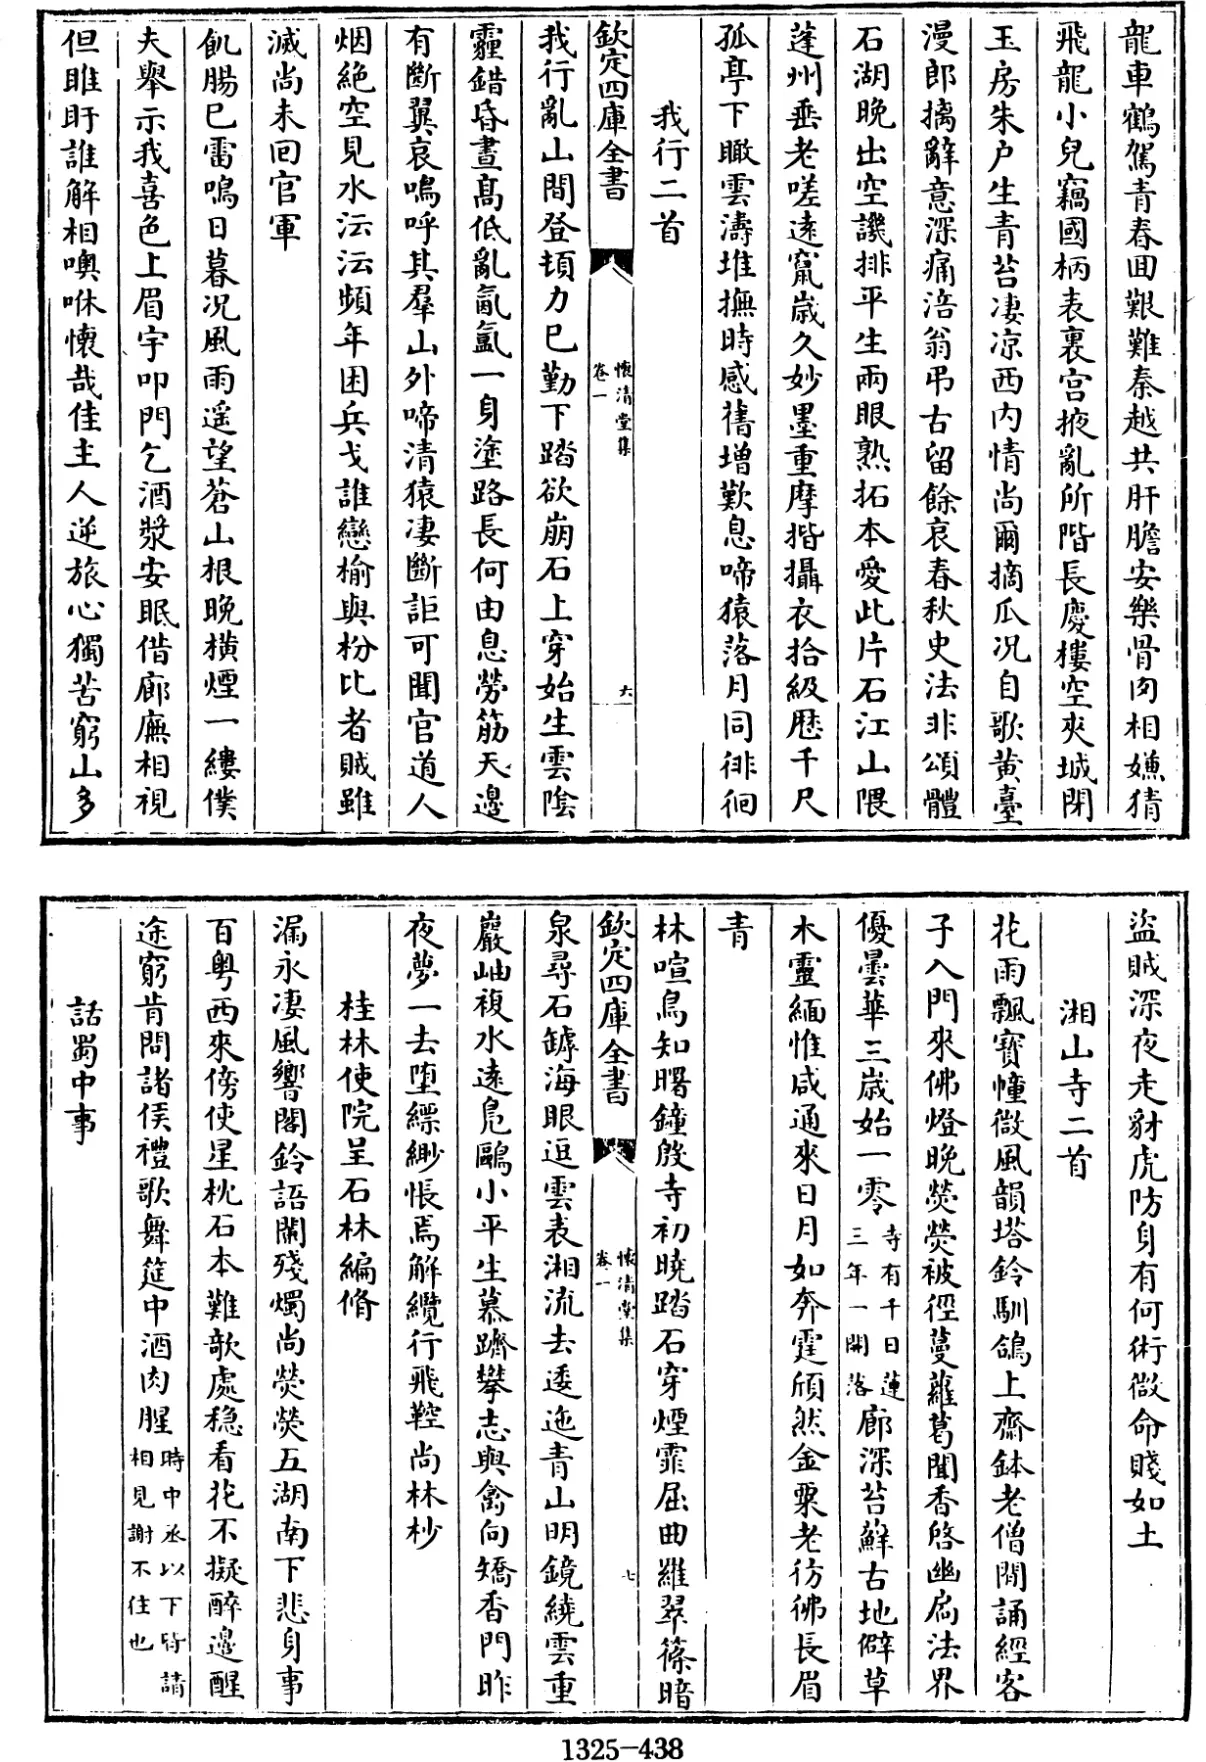 龍車鶴駕青春囬艱難秦越共肝膽安樂骨肉相嫌猜
飛龍小兒竊國柄表裏宫掖亂所階長慶樓空夾城閉
玉房朱户生青苔凄凉西内情尚爾摘瓜况自歌黄臺
漫郎摛辭意深痛涪翁弔古留餘哀春秋史法非頌體
石湖晚出空譏排平生兩眼熟拓本愛此片石江山隈
蓬州垂老嗟逺竄歳久妙墨重摩揩攝衣拾級歴千尺
孤亭下瞰雲濤堆撫時感舊增歎息啼猿落月同徘徊
我行二首
欽定四庫全書
懷清堂集
卷一
六
我行亂山間登頓力已勤下踏欲崩石上穿始生雲陰
霾錯昏晝髙低亂氤氲一身塗路長何由息勞筋天邊
有斷翼哀鳴呼其羣山外啼清猿凄斷詎可聞官道人
烟絶空見水沄沄頻年困兵戈誰戀榆與枌比者賊雖
滅尚未囘官軍
飢腸已雷鳴日暮况風雨遥望蒼山根晩横煙一縷僕
夫舉示我喜色上眉宇叩門乞酒漿安眠借廊廡相視
但睢盱誰解相噢咻懷哉佳主人逆旅心獨苦窮山多
盜賊深夜走豺虎防身有何術微命賤如土
湘山寺二首
花雨飄寳幢微風韻塔鈴馴鴿上齋鉢老僧閒誦經客
子入門來佛燈晩熒熒被徑蔓蘿葛聞香啓幽扃法界
優曇華三歳始一零寺有千日蓮三年一開落廊深苔蘚古地僻草
木靈緬惟咸通來日月如奔霆頎然金粟老彷彿長眉
青
林喧鳥知曙鐘殷寺初曉踏石穿煙霏屈曲羅翠篠暗
欽定四庫全書
懷清堂集
卷一
七
泉尋石罅海眼逗雲表湘流去逶迤青山明鏡繞雲重
巖岫複水逺鳬鷗小平生慕躋攀志與禽向矯香門昨
夜夢一去墮縹緲悵焉解纜行飛鞚尚林杪
桂林使院呈石林編脩
漏永凄風響閣鈴語闌殘燭尚熒熒五湖南下悲身事
百粤西來傍使星枕石本難欹處穏看花不擬醉邊醒
途窮肯問諸侯禮歌舞筵中酒肉腥時中丞以下皆請相見謝不住也
話蜀中事
1325-438